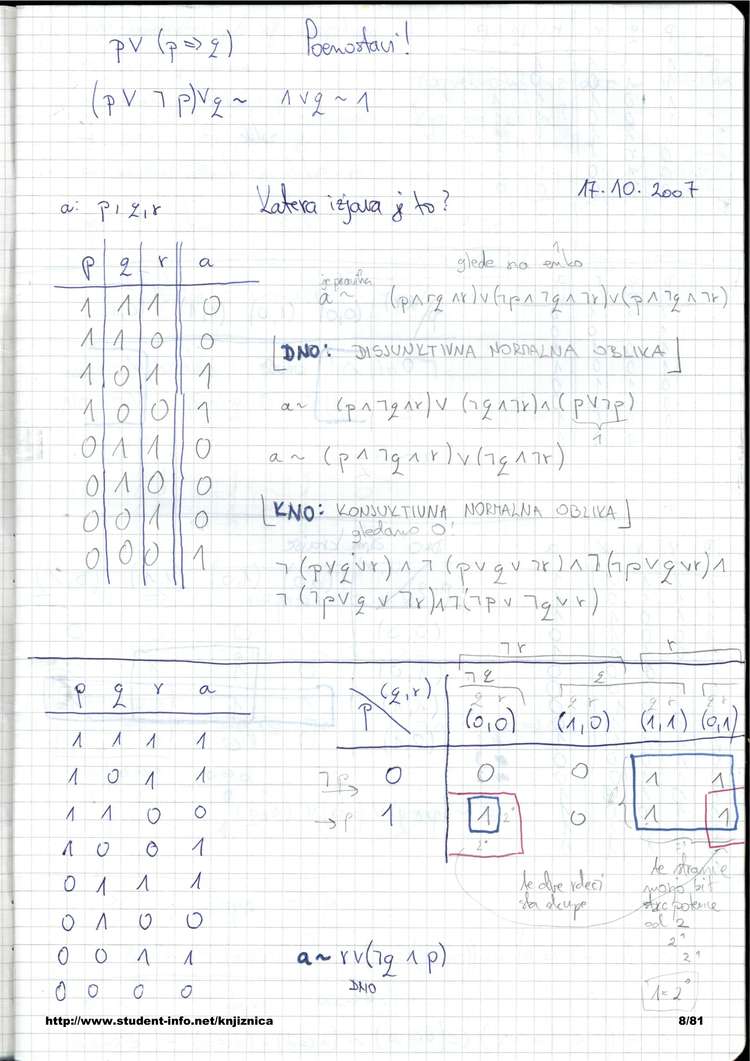 p∨ (p⇒q) Poenostavi!
(p∨ ¬p)∨q ~ 1∨q ~ 1
17.10.2007
a: p,q,r Katera izjava je to?
p q r a
1 1 1 0
1 1 0 0
1 0 1 1
1 0 0 1
0 1 1 0
0 1 0 0
0 0 1 0
0 0 0 1
glede na enko
a ~ (p∧¬q∧r)∨(¬p∧¬q∧¬r)∨(p∧¬q∧¬r)
DNO: DISJUNKTIVNA NORMALNA OBLIKA
a~ (p∧¬q∧r)∨ (¬q∧¬r)∧(p∨¬p)
1
a ~ (p∧¬q∧r)∨(¬q∧¬r)
KNO: KONJUKTIVNA NORMALNA OBLIKA
gledamo 0!
¬(p∨q∨r)∧¬(p∨q∨¬r)∧¬(¬p∨q∨r)∧
¬(¬p∨q∨¬r)∧¬(¬p∨¬q∨r)
p q r a
1 1 1 1
1 0 1 1
1 1 0 0
1 0 0 1
0 1 1 1
0 1 0 0
0 0 1 1
0 0 0 0
¬r r
¬q q
p (q,r)
q r q r q r q r
(0,0) (1,0) (1,1) (0,1)
¬p 0 0 0 1 1
→p 1 1 2° 0 1 1
2°
te dve rdeči
sta skupe
te stranice
morjo bit
potence
od 2
2¹
2¹
1=2°
a~r∨(¬q∧p)
DNO
http://www.student-info.net/knjiznica 8/81